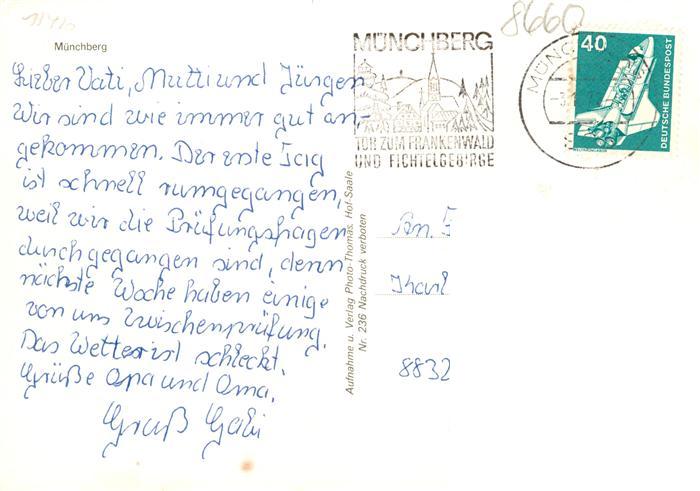 8660
Münchberg
Lieber Vati, Mutti und Jürgen
Wir sind wie immer gut an-
gekommen. Der erste Tag
ist schnell rumgegangen,
weil wir die Prüfungsfragen
durchgegangen sind, denn
nächste Woche haben einige
von uns Zwischenprüfung.
Das Wetter ist schlecht.
Grüße Opa und Oma.
Gruß Gabi
MÜNCHBERG
TOR ZUM FRANKENWALD
UND FICHTELGEBIRGE
MÜNC
40
DEUTSCHE BUNDESPOST
Aufnahme u. Verlag Photo-Thomas, Hof-Saale
Nr. 236 Nachdruck verboten
An. F
Karl
8832